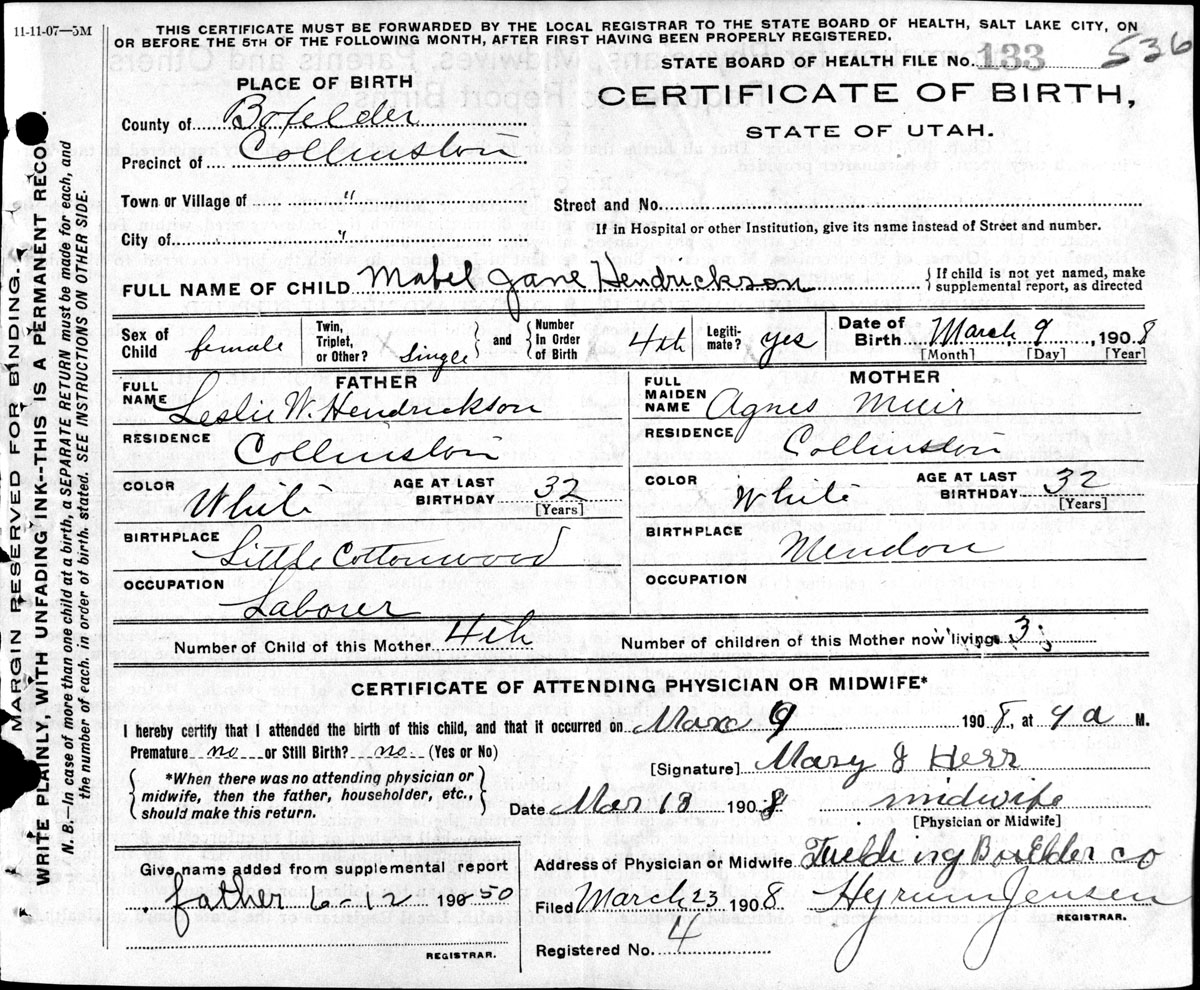 11-11-07—5M
THIS CERTIFICATE MUST BE FORWARDED BY THE LOCAL REGISTRAR TO THE STATE BOARD OF HEALTH, SALT LAKE CITY, ON
OR BEFORE THE 5TH OF THE FOLLOWING MONTH, AFTER FIRST HAVING BEEN PROPERLY REGISTERED.
STATE BOARD OF HEALTH FILE No. 133 536
PLACE OF BIRTH
CERTIFICATE OF BIRTH,
STATE OF UTAH.
County of Boxelder
Precinct of Collinston
Town or Village of "
Street and No.
If in Hospital or other Institution, give its name instead of Street and number.
City of "
FULL NAME OF CHILD Mabel Jane Hendrickson
{ If child is not yet named, make
supplemental report, as directed
Sex of Child female
Twin, Triplet, or Other? Single } and { Number In Order of Birth 4th
Legitimate? yes
Date of Birth March 9, 1908
[Month] [Day] [Year]
FATHER
FULL NAME Leslie W. Hendrickson
RESIDENCE Collinston
COLOR White AGE AT LAST BIRTHDAY 32 [Years]
BIRTHPLACE Little Cottonwood
OCCUPATION Laborer
MOTHER
FULL MAIDEN NAME Agnes Muir
RESIDENCE Collinston
COLOR White AGE AT LAST BIRTHDAY 32 [Years]
BIRTHPLACE Mendon
OCCUPATION
Number of Child of this Mother 4th Number of children of this Mother now living 3
CERTIFICATE OF ATTENDING PHYSICIAN OR MIDWIFE*
I hereby certify that I attended the birth of this child, and that it occurred on Marc 9 1908, at 4 a M.
Premature no or Still Birth? no (Yes or No)
{ *When there was no attending physician or
midwife, then the father, householder, etc.,
should make this return. }
[Signature] Mary J Herr
Date Mar 18 1908 midwife
[Physician or Midwife]
Give name added from supplemental report
father 6-12 1950
REGISTRAR.
Address of Physician or Midwife Fielding BoxElder co
Filed March 23 1908 Hyrum Jensen
REGISTRAR.
Registered No. 4
MARGIN RESERVED FOR BINDING.
WRITE PLAINLY, WITH UNFADING INK—THIS IS A PERMANENT RECO
N. B.—In case of more than one child at a birth, a SEPARATE RETURN must be made for each, and
the number of each, in order of birth, stated. SEE INSTRUCTIONS ON OTHER SIDE.